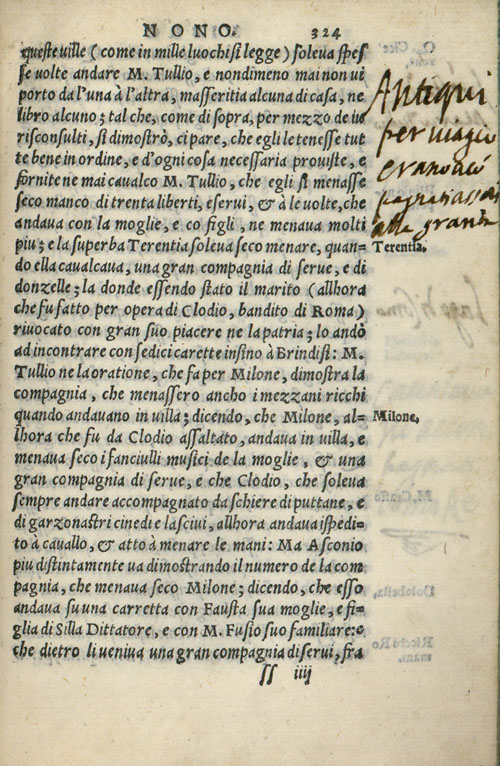 NONO. 324
queste ville (come in mille luochi si legge) soleva spes
se volte andare M. Tullio, e nondimeno mai non vi
porto da l'una à l'altra, masseritia alcuna di casa, ne
libro alcuno; tal che, come di sopra, per mezzo de iu
risconsulti, si dimostrò, ci pare, che egli le tenesse tut
te bene in ordine, e d'ogni cosa necessaria proviste, e
fornite ne mai cavalco M. Tullio, che egli si menasse
seco manco di trenta liberti, e servi, & à le volte, che
andava con la moglie, e co figli, ne menava molti
piu; e la superba Terentia soleva seco menare, quan=
do ella cavalcava, una gran compagnia di serve, e di
donzelle; la donde essendo stato il marito (allhora
che fu fatto per opera di Clodio, bandito di Roma)
rivocato con gran suo piacere ne la patria; lo andò
ad incontrare con sedici carette insino à Brindisi: M.
Tullio ne la oratione, che fa per Milone, dimostra la
compagnia, che menassero ancho i mezzani ricchi
quando andavano in villa; dicendo, che Milone, al=
lhora che fu da Clodio assaltato, andava in villa, e
menava seco i fanciulli musici de la moglie, & una
gran compagnia di serve, e che Clodio, che soleva
sempre andare accompagnato da schiere di puttane, e
di garzonastri cinedi e lascivi, allhora andava ispedi=
to à cavallo, & atto à menare le mani: Ma Asconio
piu distintamente va dimostrando il numero de la com
pagnia, che menava seco Milone; dicendo, che esso
andava su una carretta con Fausta sua moglie, e fi=
glia di Silla Dittatore, e con M. Fusio suo familiare: e
che dietro li veniva una gran compagnia di servi, fra
ss iiij
Antiqui
per viagio
erano
alla grande
Terentia.
Milone.